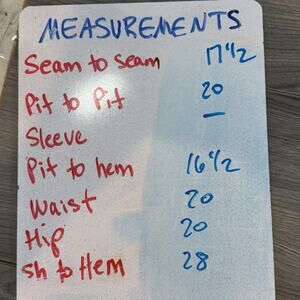 MEASUREMENTS
Seam to seam 17 1/2
Pit to Pit 20
Sleeve —
Pit to hem 16 1/2
Waist 20
Hip 20
Sh to Hem 28